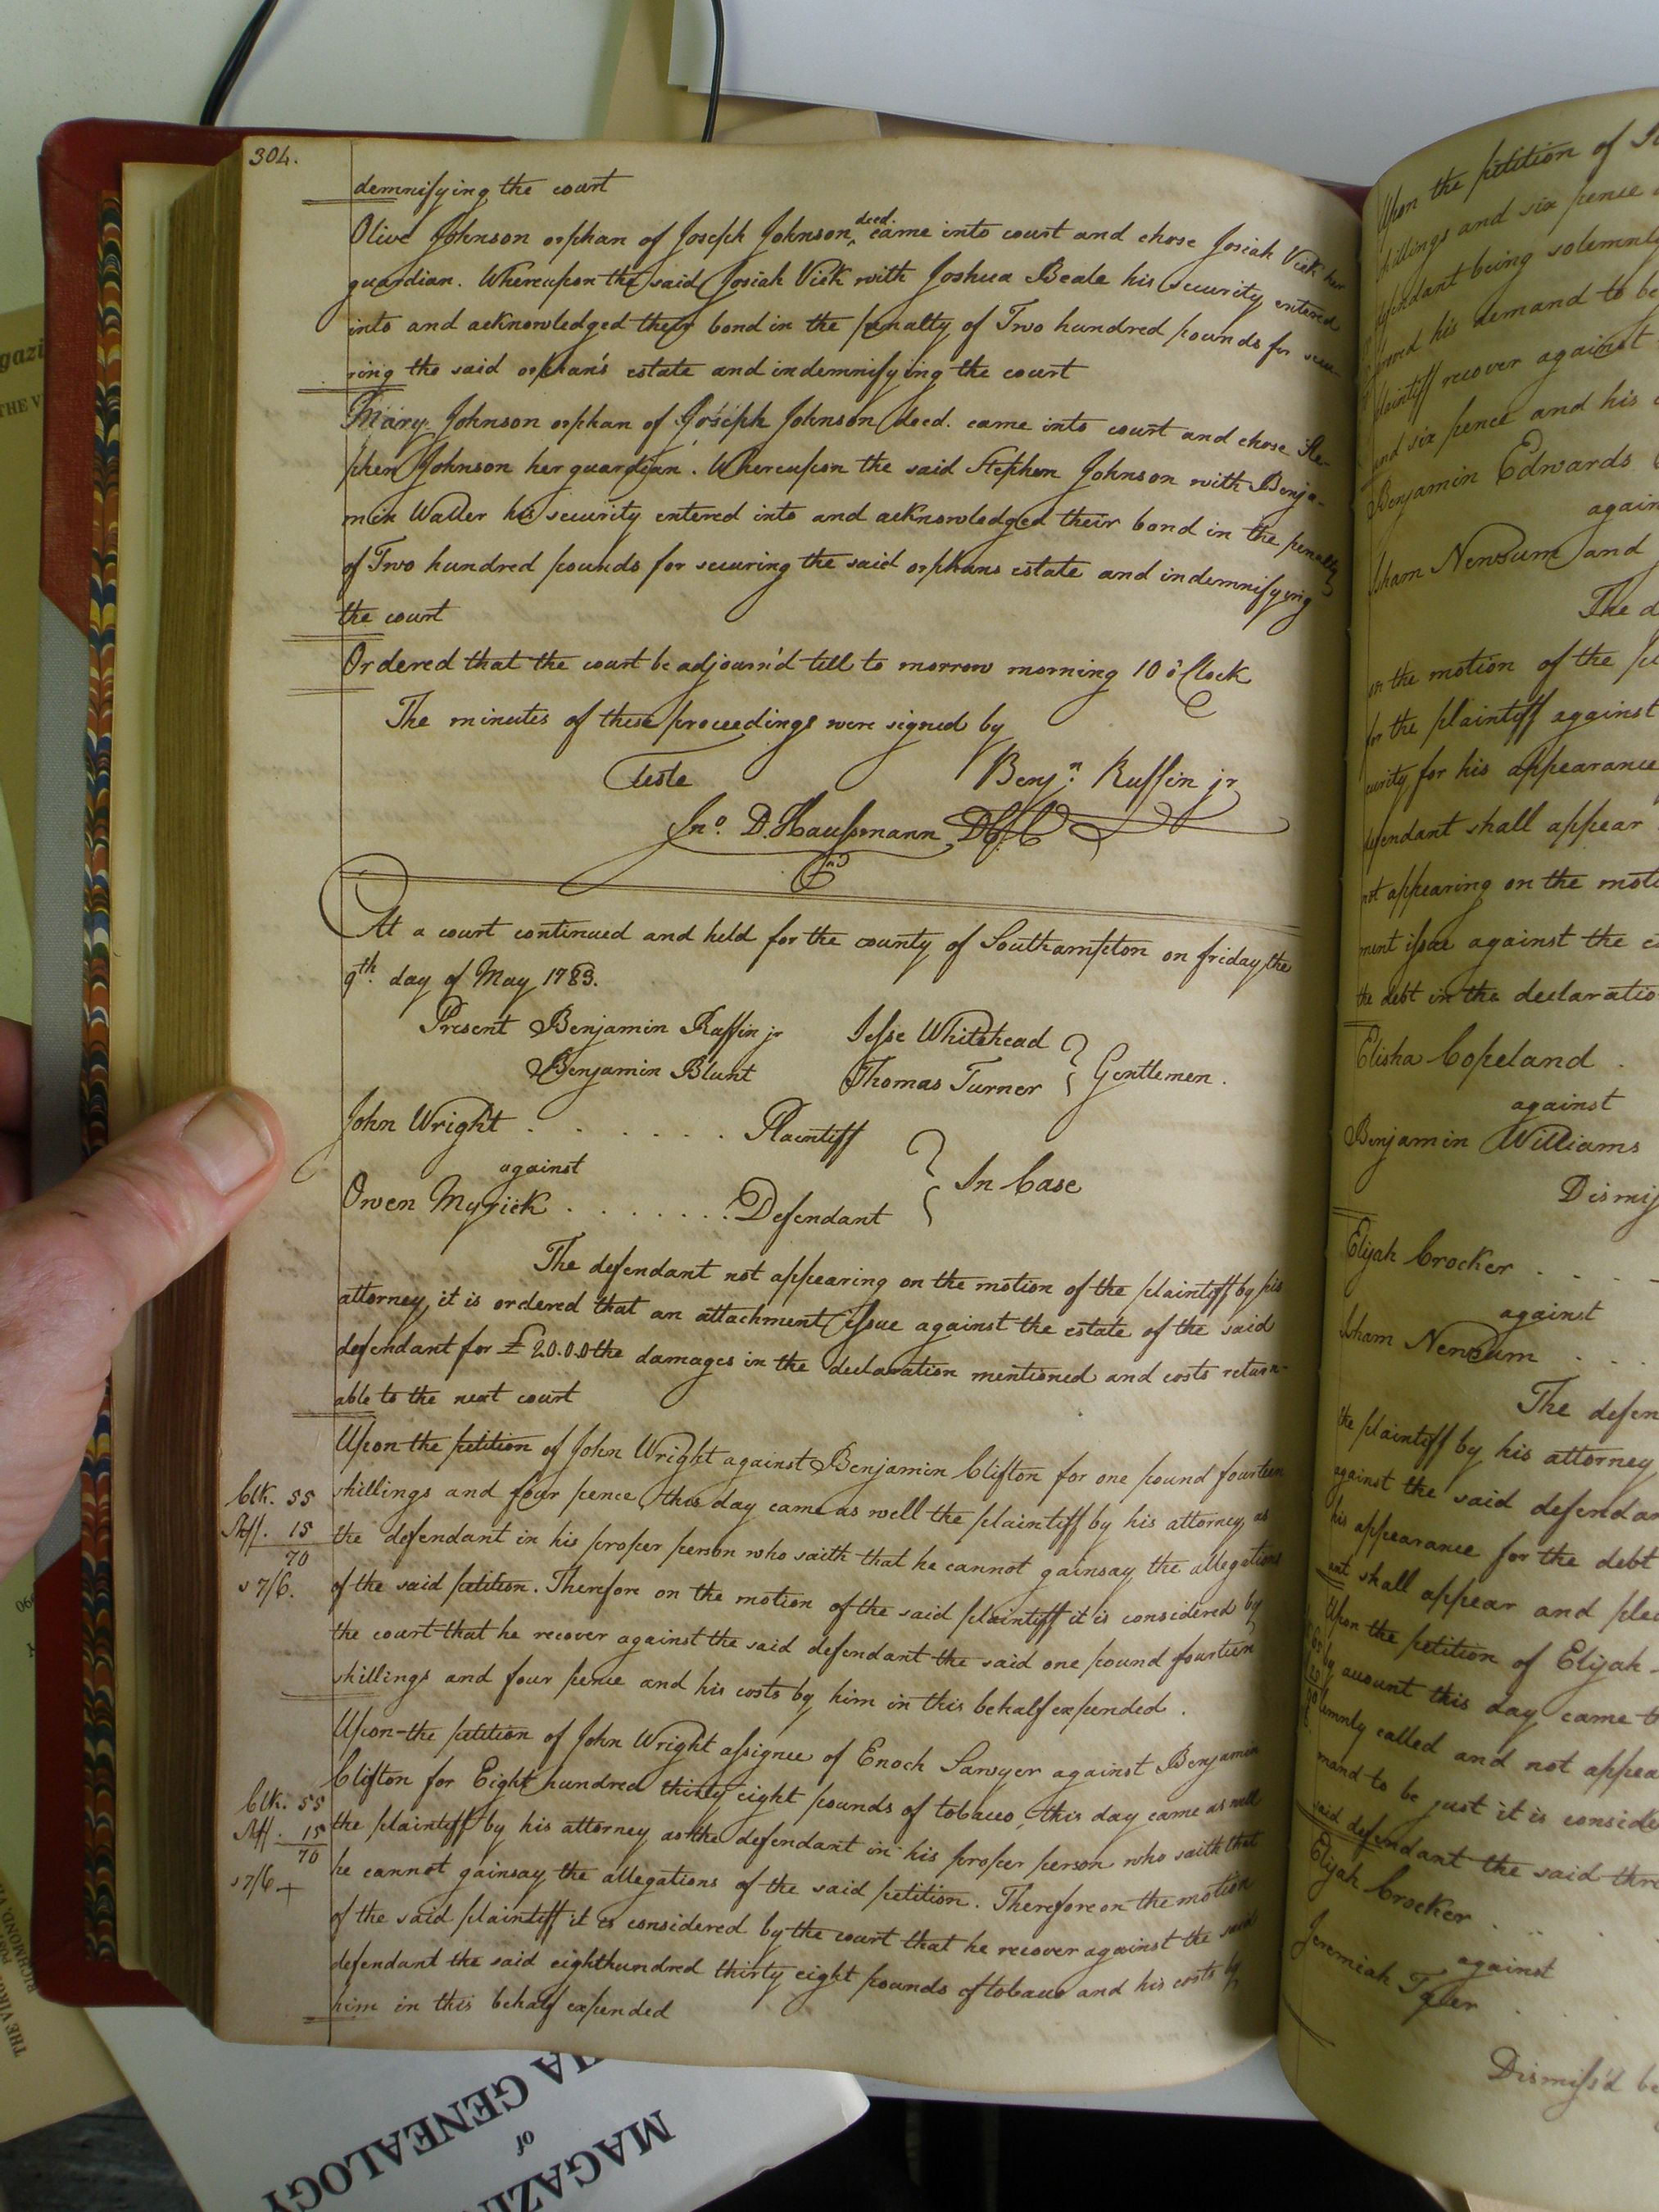 304.
demnifying the court
Olive Johnson orphan of Joseph Johnson decd. came into court and chose Josiah Vick her
guardian. Whereupon the said Josiah Vick with Joshua Beale his security entered
into and acknowledged their bond in the penalty of Two hundred pounds for secu-
ring the said orphan's estate and indemnifying the court
Mary Johnson orphan of Joseph Johnson decd. came into court and chose Ste-
phen Johnson her guardian. Whereupon the said Stephen Johnson with Benja-
min Waller his security entered into and acknowledged their bond in the penalty
of Two hundred pounds for securing the said orphans estate and indemnifying
the court
Ordered that the court be adjourn'd till to morrow morning 10 o'Clock
The minutes of these proceedings were signed by
Teste Benjn. Ruffin jr
Jno. D. Haussmann
At a court continued and held for the county of Southampton on friday the
9th. day of May 1783.
Present Benjamin Ruffin jr Jesse Whitehead
Benjamin Blunt Thomas Turner Gentlemen.
John Wright . . . . . . . Plaintiff
against In Case
Owen Myrick . . . . . . . Defendant
The defendant not appearing on the motion of the plaintiff by his
attorney it is ordered that an attachment issue against the estate of the said
defendant for £20.0.0 the damages in the declaration mentioned and costs return-
able to the next court
Upon the petition of John Wright against Benjamin Clifton for one pound fourteen
Clk. 55 shillings and four pence this day came as well the plaintiff by his attorney as
Shff. 15 the defendant in his proper person who saith that he cannot gainsay the allegations
70
s 7/6. of the said petition. Therefore on the motion of the said plaintiff it is considered by
the court that he recover against the said defendant the said one pound fourteen
shillings and four pence and his costs by him in this behalf expended.
Upon the petition of John Wright assignee of Enoch Sawyer against Benjamin
Clifton for Eight hundred thirty eight pounds of tobacco, this day came as well
Clk. 55 the plaintiff by his attorney as the defendant in his proper person who saith that
Shff. 15
70 he cannot gainsay the allegations of the said petition. Therefore on the motion
s 7/6 + of the said plaintiff it is considered by the court that he recover against the said
defendant the said eight hundred thirty eight pounds of tobacco and his costs by
him in this behalf expended
Upon the petition of
shillings and six pence
defendant being solemnly
his demand to be
plaintiff recover against
and six pence and his
Benjamin Edwards
again
Isham Newsum and
The d
on the motion of the
for the plaintiff against
curity for his appearance
defendant shall appear
not appearing on the moti
ment issue against the
the debt in the declaratio
Elisha Copeland .
against
Benjamin Williams
Dismiss
Elijah Crocker . . . .
against
Isham Newsum . . .
The defen
the plaintiff by his attorney
against the said defendan
his appearance for the debt
shall appear and plea
Upon the petition of Elijah
by account this day came
lemnly called and not appea
mand to be just it is conside
said defendant the said thre
Elijah Crocker . . .
against
Jeremiah Tyler
Dismiss'd
MAGAZIN
of
IA GENEALOGY
gazi
THE V
RICHMOND,
THE VIRG